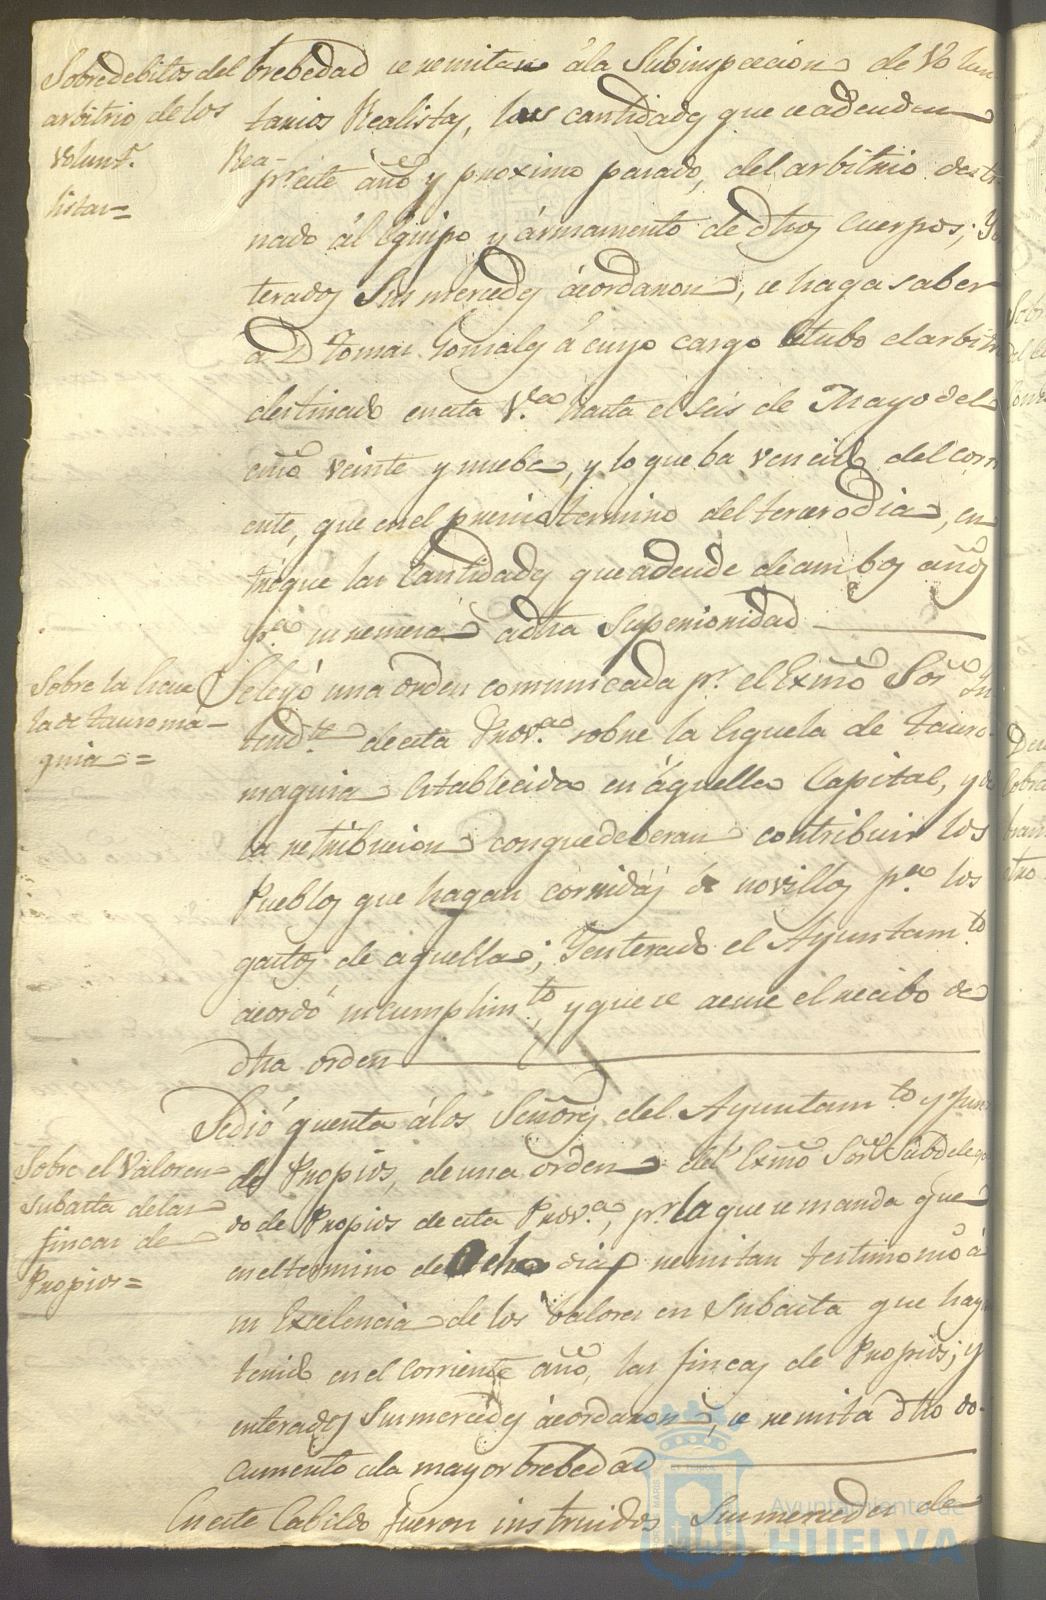 Sobre debitos del
arbitrio de los
Volunt.s Rea-
listas=
brebedad se remitan á la Subinspeccion de Volun
tarios Realistas, las cantidades que se adeuden
pr. este año y proximo pasado, del arbitrio desti-
nado ál Equipo y ármamento de dhos Cuerpos; Yn
terados Sus mercedes ácordaron, se haga saber
a D Tomas Gonsales á cuyo cargo Estubo el arbitrio
destinado en esta V.a hasta el seis de Mayo del
año veinte y nuebe, y lo que ba vencido del corri
ente, que en el preciso termino del tercero dia, en
tregue las Cantidades que adeude de ambos años
p.a su remesa á dha Superioridad
Sobre la Escue
la de tauroma-
quia=
Se leyó una orden comunicada pr. el Exmo Sor. Yn
tend.te de esta Prov.a sobre la Esquela de tauro-
maquia Establecida en áquella Capital, y de
la retribucion con que deberan contribuir los
Pueblos que hagan corridas de novillos p.a los
gastos de aquella; Y enterado el Ayuntam.to
acordó su cumplim.to, y que se acuse el recibo de
dha orden
Sobre el Valor en
Subasta de las
fincas de
Propios=
Se dió quenta á los Señores del Ayuntam.to y Jun
de Propios, de una orden del Exmo Sor. Subdelega
do de Propios de esta Prov.a, pr. la que se manda que
en el termino de Ocho dias remitan testimonio á
su Excelencia de los valores en Subasta que hayan
tenido en el corriente año, las fincas de Propios; y
enterados Sus mercedes ácordaron, se remita dho do-
cumento a la mayor brebedad
En este Cabildo fueron instruidos Sus mercedes de
Ayuntamiento de
HUELVA